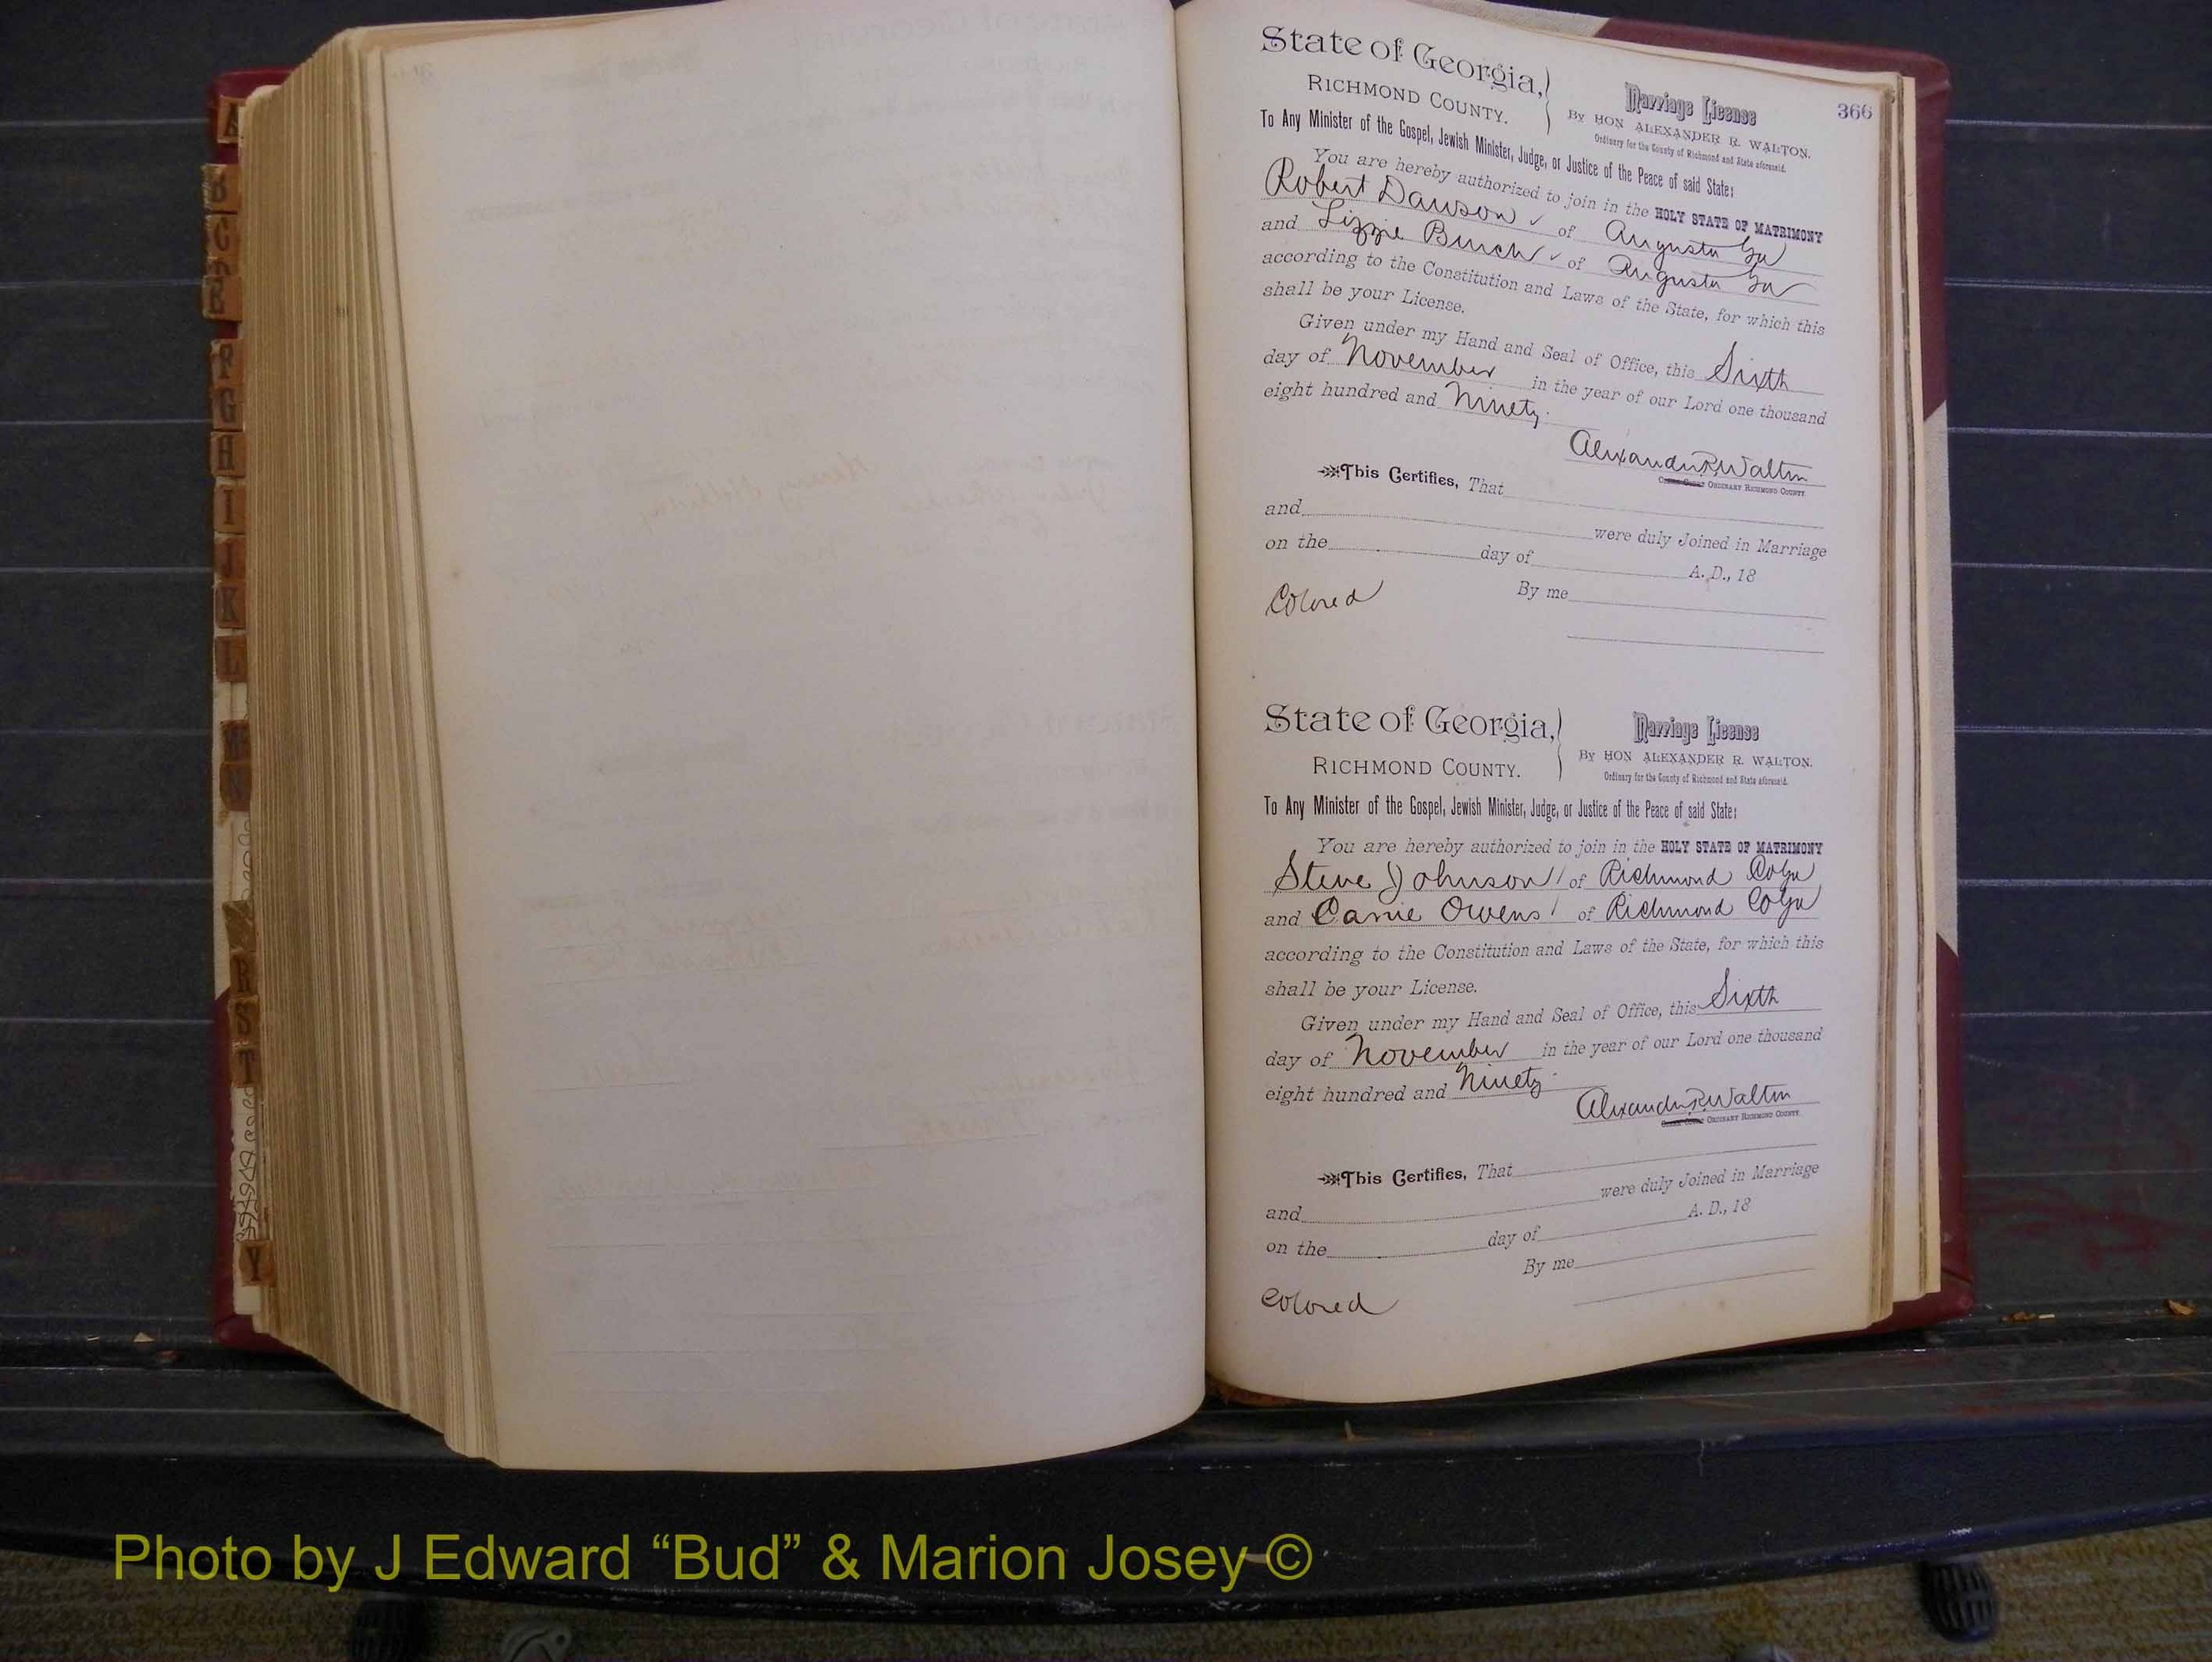 A
B
C
D
E
F
G
H
I
J
K
L
M
N
R
S
T
Y
366
State of Georgia,
Richmond County.
Marriage License
By Hon Alexander R. Walton.
Ordinary for the County of Richmond and State aforesaid.
To Any Minister of the Gospel, Jewish Minister, Judge, or Justice of the Peace of said State:
You are hereby authorized to join in the HOLY STATE OF MATRIMONY
Robert Dawson of Augusta Ga
and Lizzie Burch of Augusta Ga
according to the Constitution and Laws of the State, for which this
shall be your License.
Given under my Hand and Seal of Office, this Sixth
day of November in the year of our Lord one thousand
eight hundred and Ninety.
Alexander R. Walton
Ordinary Richmond County.
This Certifies, That
and were duly Joined in Marriage
on the day of A. D., 18
By me
Colored
State of Georgia,
Richmond County.
Marriage License
By Hon Alexander R. Walton.
Ordinary for the County of Richmond and State aforesaid.
To Any Minister of the Gospel, Jewish Minister, Judge, or Justice of the Peace of said State:
You are hereby authorized to join in the HOLY STATE OF MATRIMONY
Steve Johnson of Richmond Co Ga
and Carrie Owens of Richmond Co Ga
according to the Constitution and Laws of the State, for which this
shall be your License.
Given under my Hand and Seal of Office, this Sixth
day of November in the year of our Lord one thousand
eight hundred and Ninety.
Alexander R. Walton
Ordinary Richmond County.
This Certifies, That
and were duly Joined in Marriage
on the day of A. D., 18
By me
Colored
Photo by J Edward “Bud” & Marion Josey ©